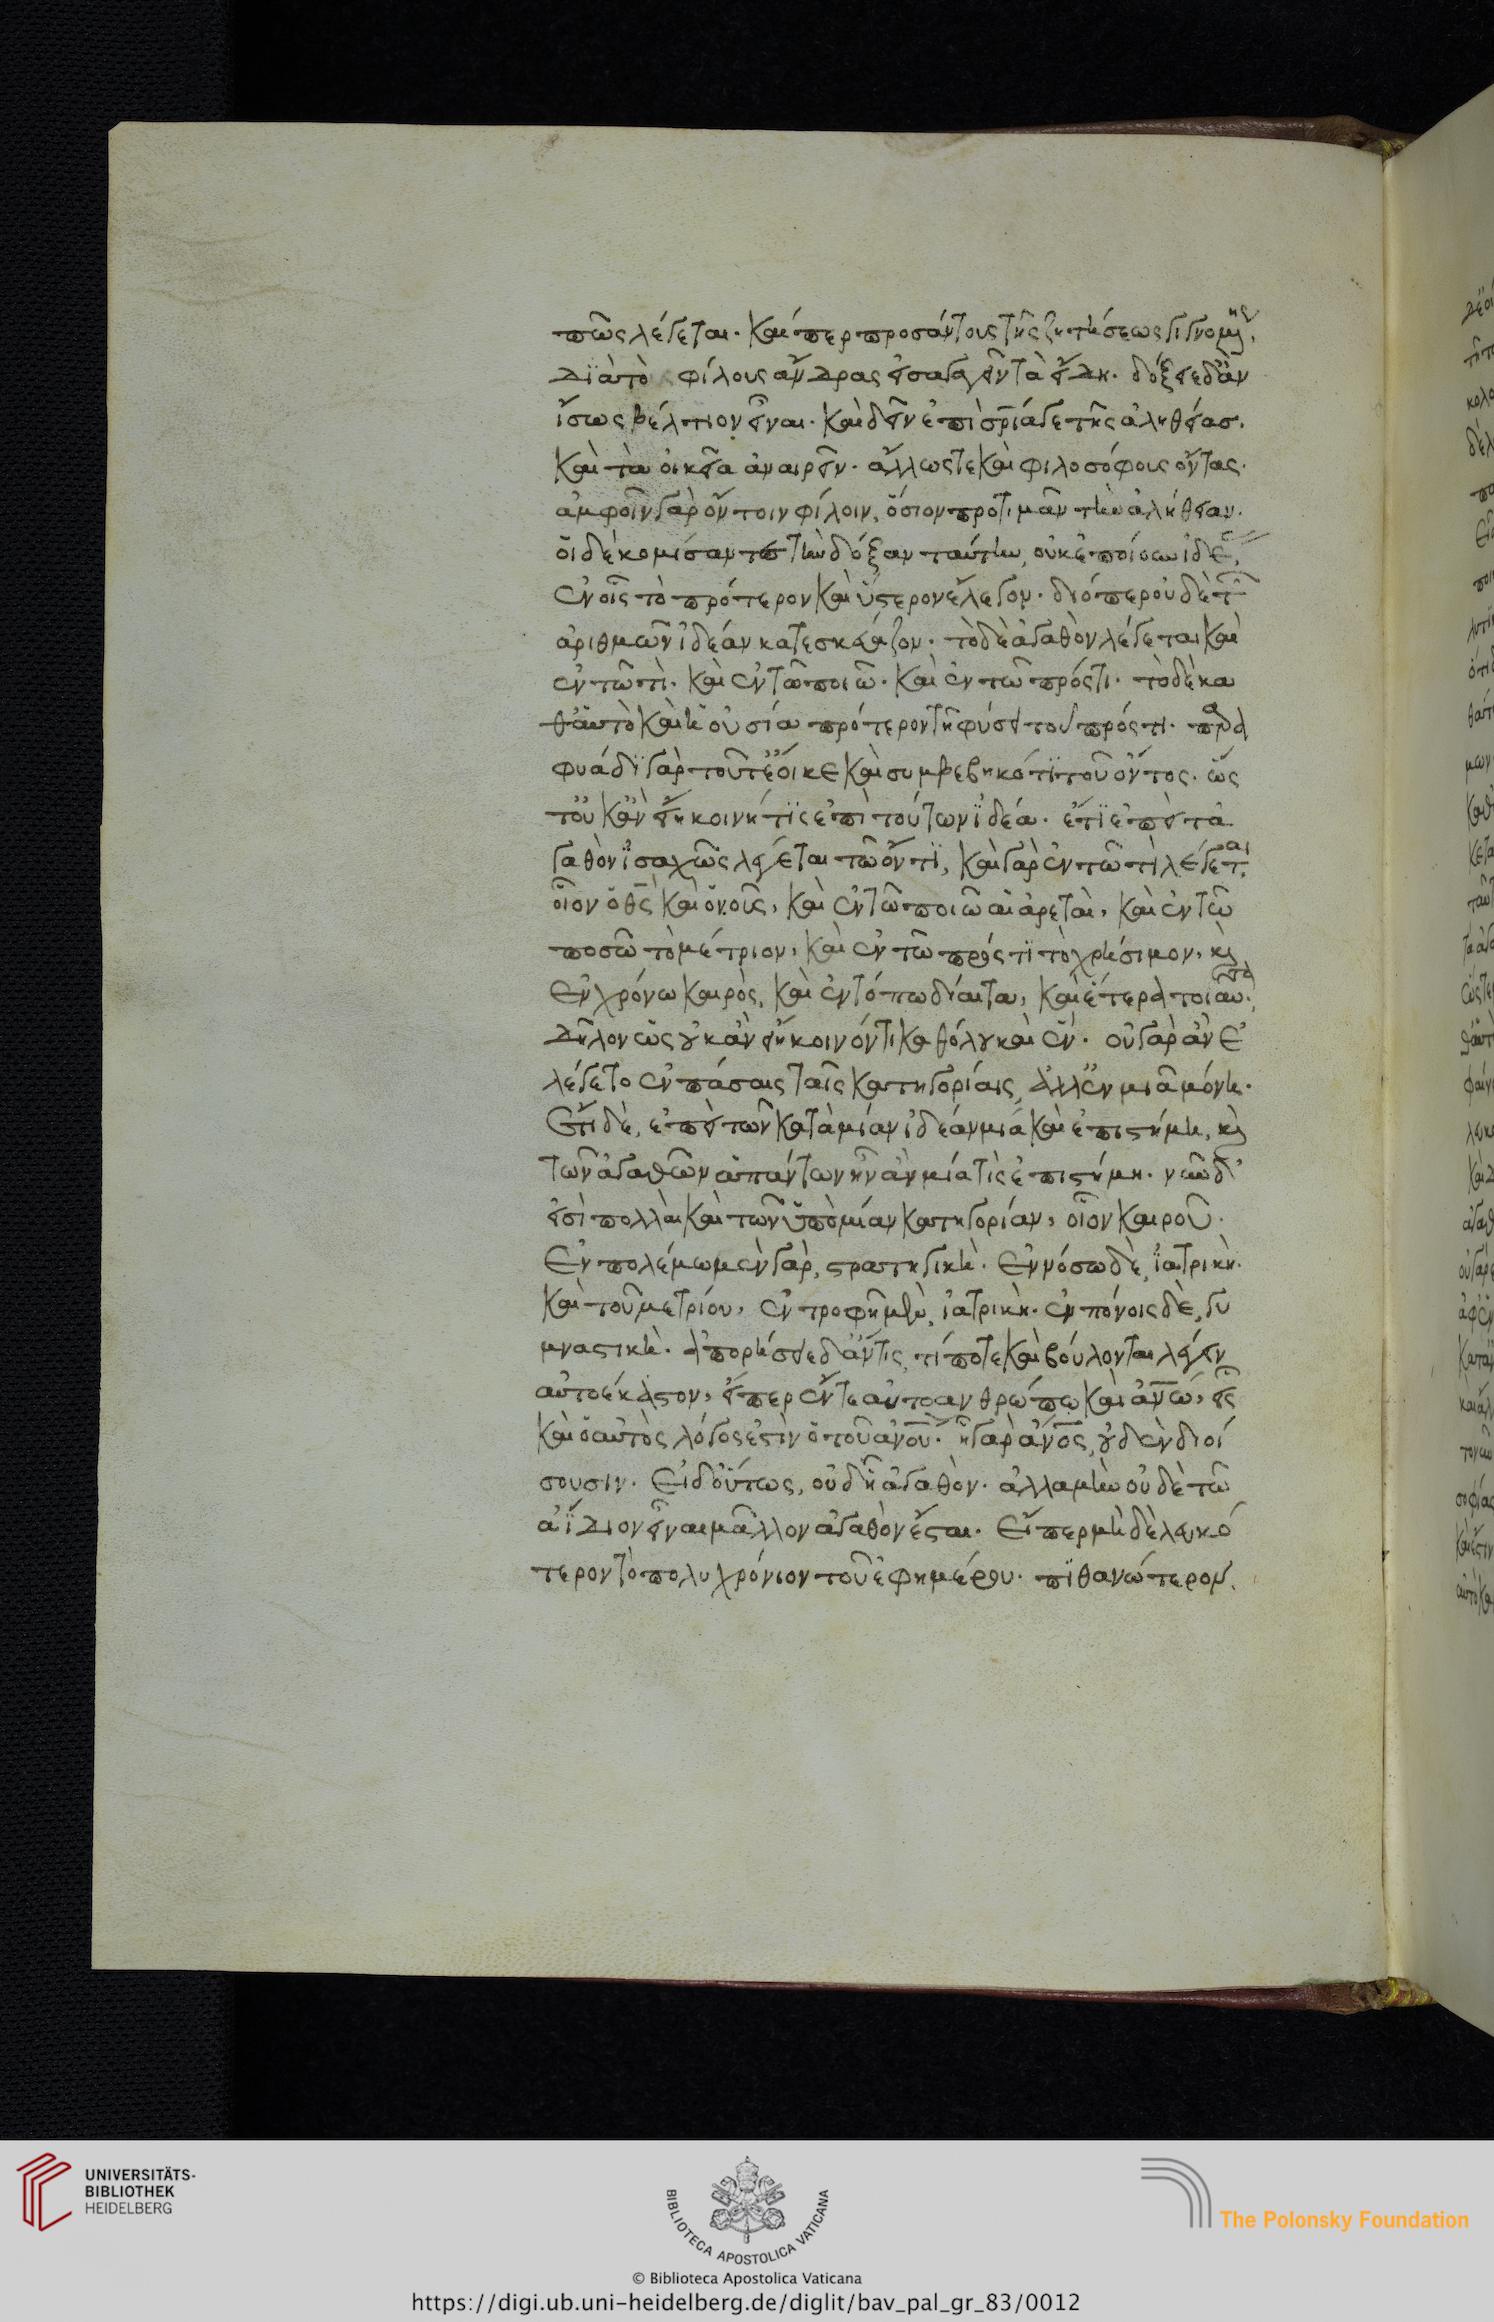 πῶς λέγεται. Καίπερ προσάντους τῆς ζητήσεως γιγνομένης,
διὰ τὸ φίλους ἄνδρας εἰσαγαγεῖν τὰ εἴδη. δόξειε δ' ἂν
ἴσως βέλτιον εἶναι. Καὶ δεῖν ἐπὶ σωτηρίᾳ γε τῆς ἀληθείας.
Καὶ τὰ οἰκεῖα ἀναιρεῖν. ἄλλως τε καὶ φιλοσόφους ὄντας.
ἀμφοῖν γὰρ ὄντοιν φίλοιν, ὅσιον προτιμᾶν τὴν ἀλήθειαν.
οἱ δὲ κομίσαντες τὴν δόξαν ταύτην, οὐκ ἐποίουν ἰδέας,
ἐν οἷς τὸ πρότερον καὶ ὕστερον ἔλεγον. διόπερ οὐδὲ τῶν
ἀριθμῶν ἰδέαν κατεσκεύαζον. τὸ δὲ ἀγαθὸν λέγεται καὶ
ἐν τῷ τὶ. καὶ ἐν τῷ ποιῷ. καὶ ἐν τῷ πρός τι. τὸ δὲ κα
θ' αὑτὸ καὶ ἡ οὐσία πρότερον τῇ φύσει τοῦ πρός τι. παρα
φυάδι γὰρ τοῦτ' ἔοικε καὶ συμβεβηκότι τοῦ ὄντος. ὥς
τ' οὐκ ἂν εἴη κοινή τις ἐπὶ τούτων ἰδέα. ἔτι ἐπεὶ τἀ
γαθὸν ἰσαχῶς λέγεται τῷ ὄντι, καὶ γὰρ ἐν τῷ τὶ λέγεται
οἷον ὁ θς καὶ ὁ νοῦς, καὶ ἐν τῷ ποιῷ αἱ ἀρεταὶ, καὶ ἐν τῷ
ποσῷ τὸ μέτριον, καὶ ἐν τῷ πρός τι τὸ χρήσιμον, καὶ
ἐν χρόνῳ καιρὸς, καὶ ἐν τόπῳ δίαιτα, καὶ ἕτερα τοιαῦτα.
δῆλον ὡς οὐκ ἂν εἴη κοινόν τι καθόλου καὶ ἕν. οὐ γὰρ ἂν ἐ
λέγετο ἐν πάσαις ταῖς κατηγορίαις, ἀλλ' ἐν μιᾷ μόνῃ.
Ἔτι δὲ, ἐπεὶ τῶν κατὰ μίαν ἰδέαν μία καὶ ἐπιστήμη, καὶ
τῶν ἀγαθῶν ἁπάντων ἦν ἂν μία τὶς ἐπιστήμη. νῦν δ'
εἰσὶ πολλαὶ καὶ τῶν ὑπὸ μίαν κατηγορίαν, οἷον καιροῦ.
Ἐν πολέμῳ μὲν γὰρ, στρατηγική. Ἐν νόσῳ δὲ, ἰατρική.
καὶ τοῦ μετρίου, ἐν τροφῇ μὲν, ἰατρική. ἐν πόνοις δὲ, γυ
μναστική. ἀπορήσειε δ' ἄν τις, τί ποτε καὶ βούλονται λέγειν
αὐτοέκαστον, εἴπερ ἔν τε αὐτοανθρώπῳ καὶ ἀνω, εἷς
καὶ ὁ αὐτὸς λόγος ἐστὶν ὁ τοῦ ἀνου. ᾗ γὰρ ἀνος, οὐδὲν διοί
σουσιν. Εἰ δ' οὕτως, οὐδ' ᾗ ἀγαθὸν. ἀλλὰ μὴν οὐδὲ τῷ
ἀΐδιον εἶναι μᾶλλον ἀγαθὸν ἔσται. Εἴπερ μὴ δὲ λευκό
τερον τὸ πολυχρόνιον τοῦ ἐφημέρου. πιθανώτερον.
UNIVERSITÄTS-
BIBLIOTHEK
HEIDELBERG
BIBLIOTECA APOSTOLICA VATICANA
The Polonsky Foundation
© Biblioteca Apostolica Vaticana
https://digi.ub.uni-heidelberg.de/diglit/bav_pal_gr_83/0012